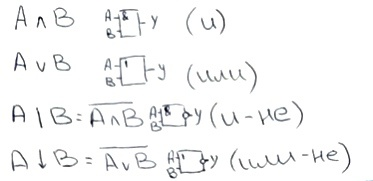 A ∧ B A B & y (и)
A ∨ B A B 1 y (или)
A | B = \overline{A ∧ B} A B & y (и-не)
A ↓ B = \overline{A ∨ B} A B 1 y (или-не)